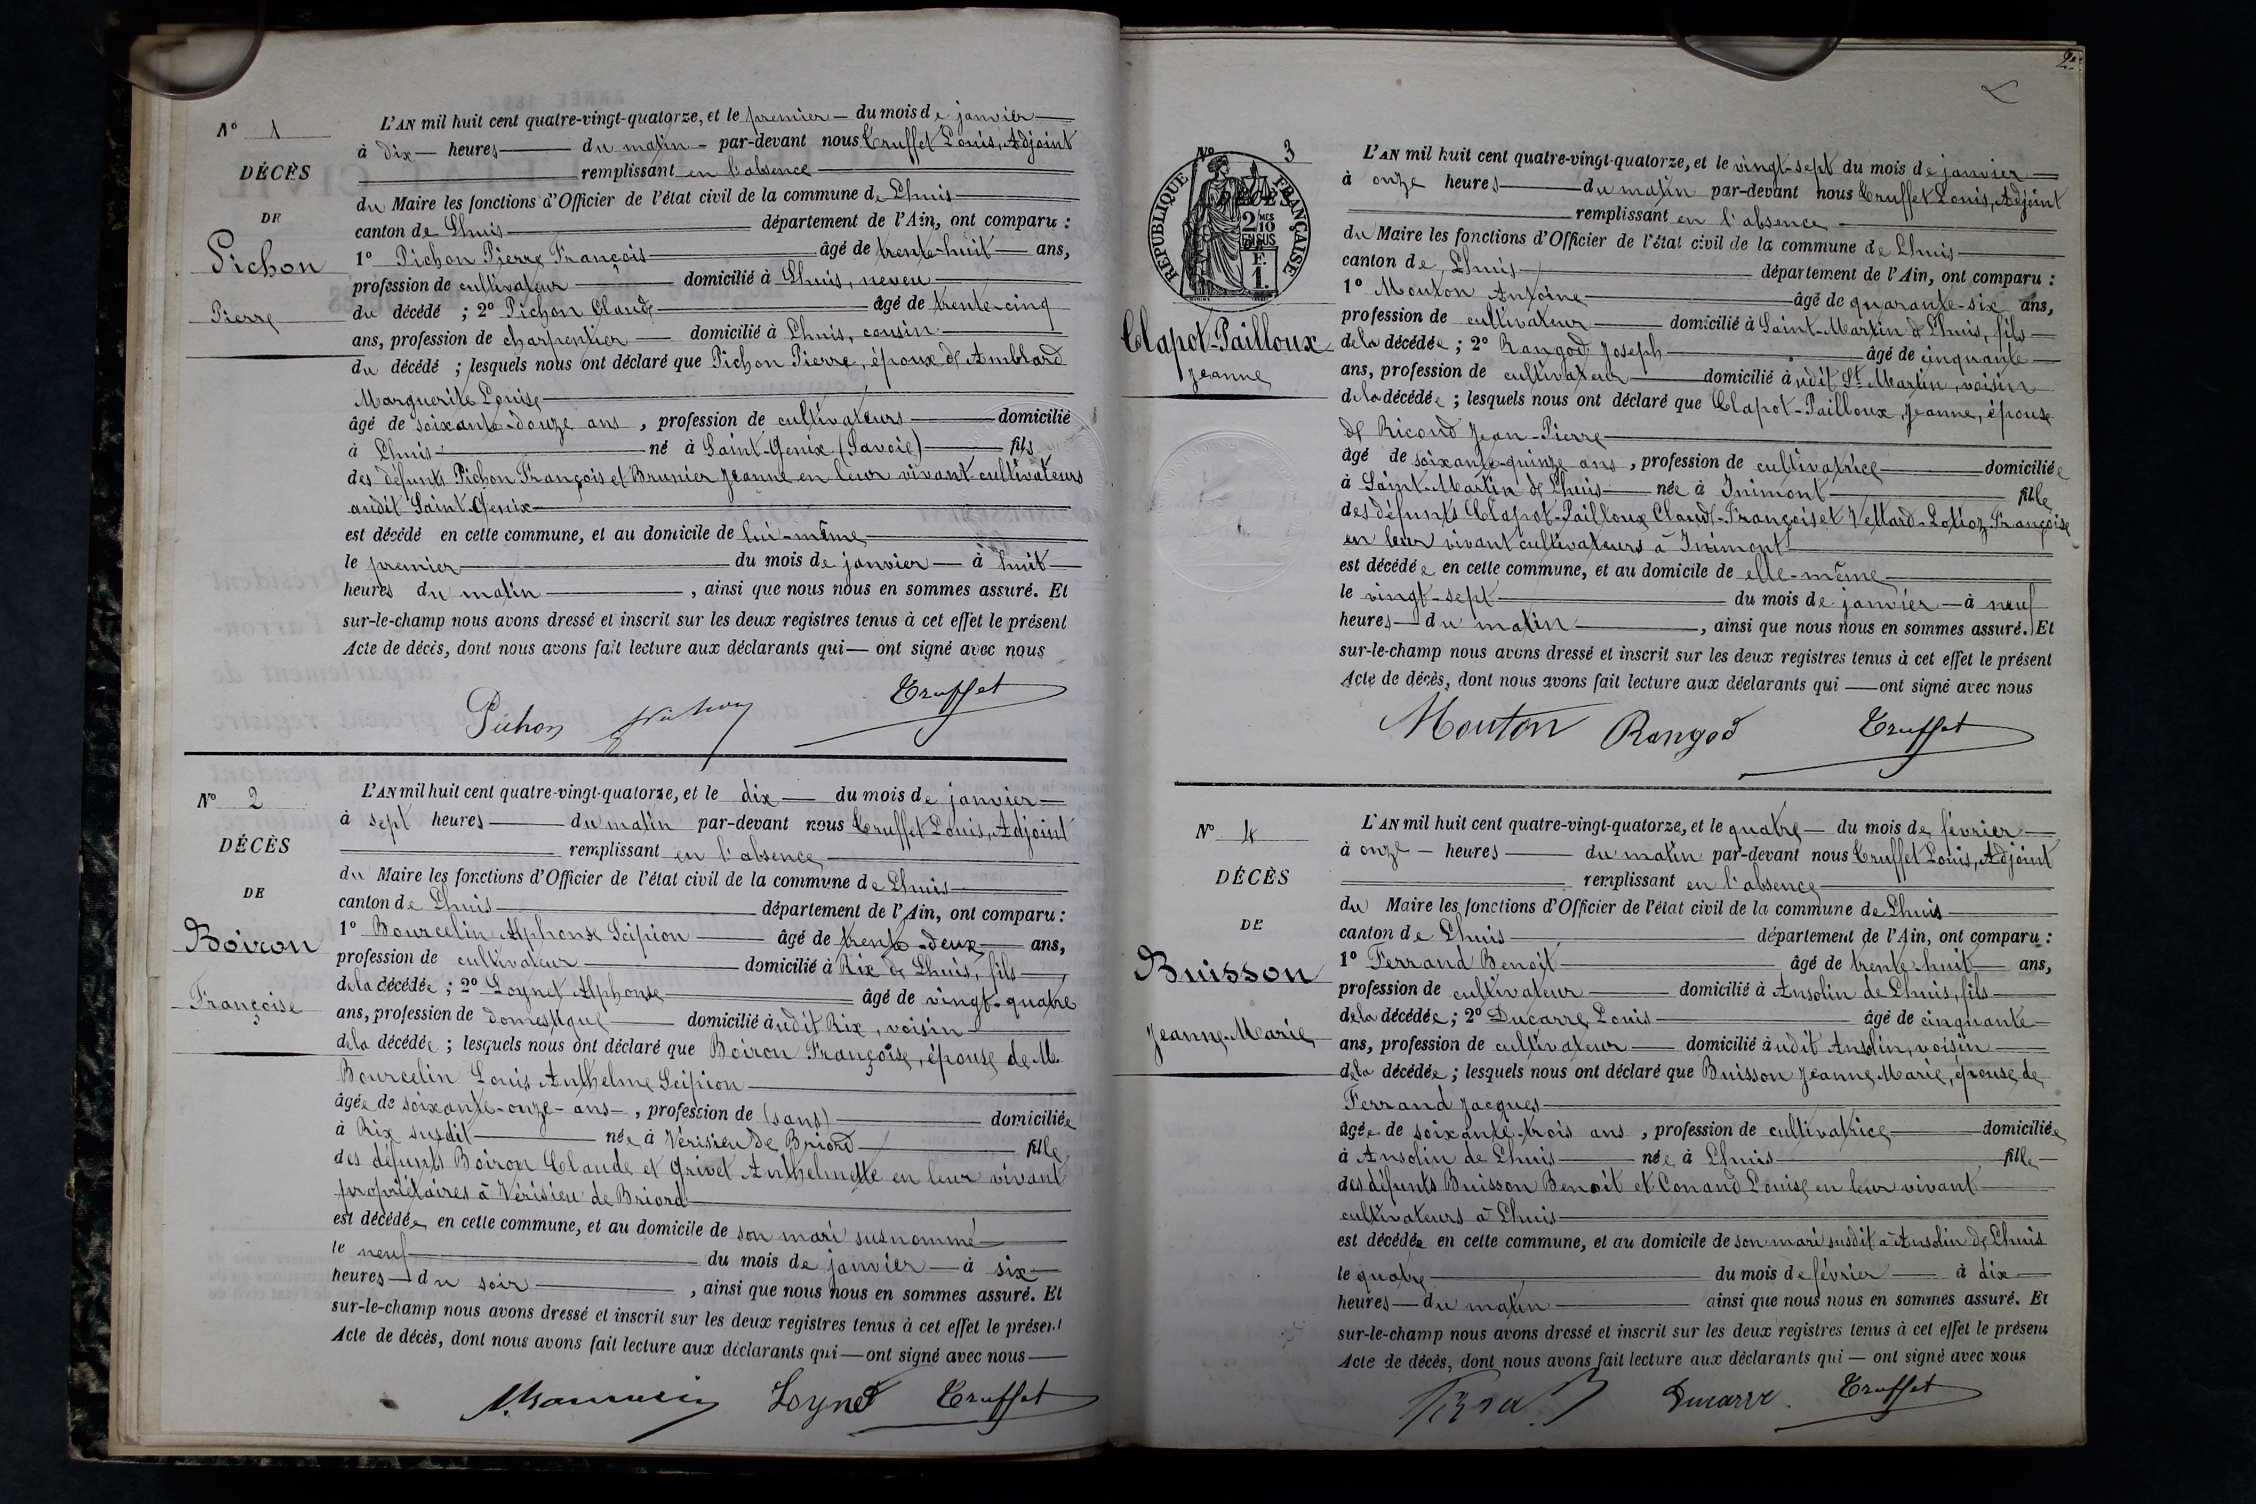 N° 1
DÉCÈS
DE
Pichon
Pierre
L'AN mil huit cent quatre-vingt-quatorze, et le premier du mois de janvier
à dix heures du matin par-devant nous Truffet Louis, Adjoint
remplissant en l'absence
du Maire les fonctions d'Officier de l'état civil de la commune de Lhuis
canton de Lhuis département de l'Ain, ont comparu :
1° Pichon Pierre François âgé de trente-huit ans,
profession de cultivateur domicilié à Lhuis, neveu
du décédé ; 2° Pichon Claude âgé de trente-cinq
ans, profession de charpentier domicilié à Lhuis, cousin
du décédé ; lesquels nous ont déclaré que Pichon Pierre, époux de Amblard
Marguerite Louise
âgé de soixante-douze ans, profession de cultivateurs domicilié
à Lhuis né à Saint-Genix (Savoie) fils
des défunts Pichon François et Brunier Jeanne en leur vivant cultivateurs
audit Saint-Genix
est décédé en cette commune, et au domicile de lui-même
le premier du mois de janvier à huit
heures du matin, ainsi que nous nous en sommes assuré. Et
sur-le-champ nous avons dressé et inscrit sur les deux registres tenus à cet effet le présent
Acte de décès, dont nous avons fait lecture aux déclarants qui ont signé avec nous
Pichon Truffet
N° 2
DÉCÈS
DE
Boiron
Françoise
L'AN mil huit cent quatre-vingt-quatorze, et le dix du mois de janvier
à sept heures du matin par-devant nous Truffet Louis, Adjoint
remplissant en l'absence
du Maire les fonctions d'Officier de l'état civil de la commune de Lhuis
canton de Lhuis département de l'Ain, ont comparu :
1° Bourcelin Alphonse Scipion âgé de trente-deux ans,
profession de cultivateur domicilié à Rix de Lhuis, fils
de la décédée ; 2° Loynet Alphonse âgé de vingt-quatre
ans, profession de domestique domicilié àudit Rix, voisin
de la décédée ; lesquels nous ont déclaré que Boiron Françoise, épouse de M.
Bourcelin Louis Anthelme Scipion
âgée de soixante-onze ans, profession de (sans) domiciliée
à Rix susdit née à Vérisieu de Briord fille
des défunts Boiron Claude et Grivet Anthelmette en leur vivant
propriétaires à Vérisieu de Briord
est décédée en cette commune, et au domicile de son mari susnommé
le neuf du mois de janvier à six
heures du soir, ainsi que nous nous en sommes assuré. Et
sur-le-champ nous avons dressé et inscrit sur les deux registres tenus à cet effet le présent
Acte de décès, dont nous avons fait lecture aux déclarants qui ont signé avec nous
Loynet Truffet
2
N° 3
DÉCÈS
RÉPUBLIQUE FRANÇAISE
2 MES 10
EN SUS
F. 1.
Clapot-Pailloux
Jeanne
L'AN mil huit cent quatre-vingt-quatorze, et le vingt-sept du mois de janvier
à onze heures du matin par-devant nous Truffet Louis, Adjoint
remplissant en l'absence
du Maire les fonctions d'Officier de l'état civil de la commune de Lhuis
canton de Lhuis département de l'Ain, ont comparu :
1° Mouton Antoine âgé de quarante-six ans,
profession de cultivateur domicilié à Saint-Martin de Lhuis, fils
de la décédée ; 2° Rangod Joseph âgé de cinquante
ans, profession de cultivateur domicilié àudit St Martin, voisin
de la décédée ; lesquels nous ont déclaré que Clapot-Pailloux, Jeanne, épouse
de Ricond Jean-Pierre
âgé de soixante-quinze ans, profession de cultivatrice domiciliée
à Saint-Martin de Lhuis née à Inimont fille
des défunts Clapot-Pailloux Claude-François et Vettard-Lotioz Françoise
en leur vivant cultivateurs à Inimont
est décédée en cette commune, et au domicile de elle-même
le vingt-sept du mois de janvier à neuf
heures du matin, ainsi que nous nous en sommes assuré. Et
sur-le-champ nous avons dressé et inscrit sur les deux registres tenus à cet effet le présent
Acte de décès, dont nous avons fait lecture aux déclarants qui ont signé avec nous
Mouton Rangod Truffet
N° 4
DÉCÈS
DE
Buisson
Jeanne-Marie
L'AN mil huit cent quatre-vingt-quatorze, et le quatre du mois de février
à onze heures du matin par-devant nous Truffet Louis, Adjoint
remplissant en l'absence
du Maire les fonctions d'Officier de l'état civil de la commune de Lhuis
canton de Lhuis département de l'Ain, ont comparu :
1° Ferrand Benoit âgé de trente-huit ans,
profession de cultivateur domicilié à Ansolin de Lhuis, fils
de la décédée ; 2° Ducarre Louis âgé de cinquante
ans, profession de cultivateur domicilié àudit Ansolin, voisin
de la décédée ; lesquels nous ont déclaré que Buisson Jeanne Marie, épouse de
Ferrand Jacques
âgée de soixante-trois ans, profession de cultivatrice domiciliée
à Ansolin de Lhuis née à Lhuis fille
des défunts Buisson Benoit et Conand Louise en leur vivant
cultivateurs à Lhuis
est décédée en cette commune, et au domicile de son mari susdit à Ansolin de Lhuis
le quatre du mois de février à dix
heures du matin ainsi que nous nous en sommes assuré. Et
sur-le-champ nous avons dressé et inscrit sur les deux registres tenus à cet effet le présent
Acte de décès, dont nous avons fait lecture aux déclarants qui ont signé avec nous
Ducarre Truffet